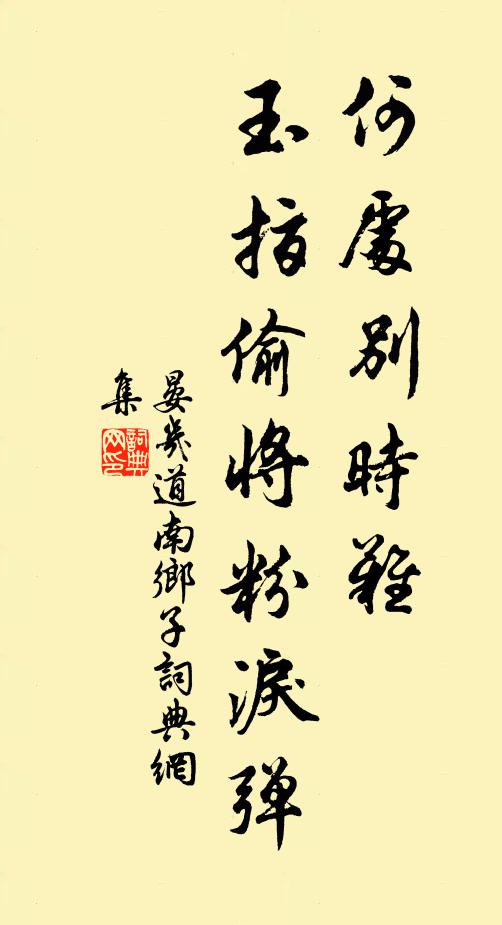 何處別時難
玉指偷將粉淚彈
晏幾道南鄉子詞典網
集
詞典
网印